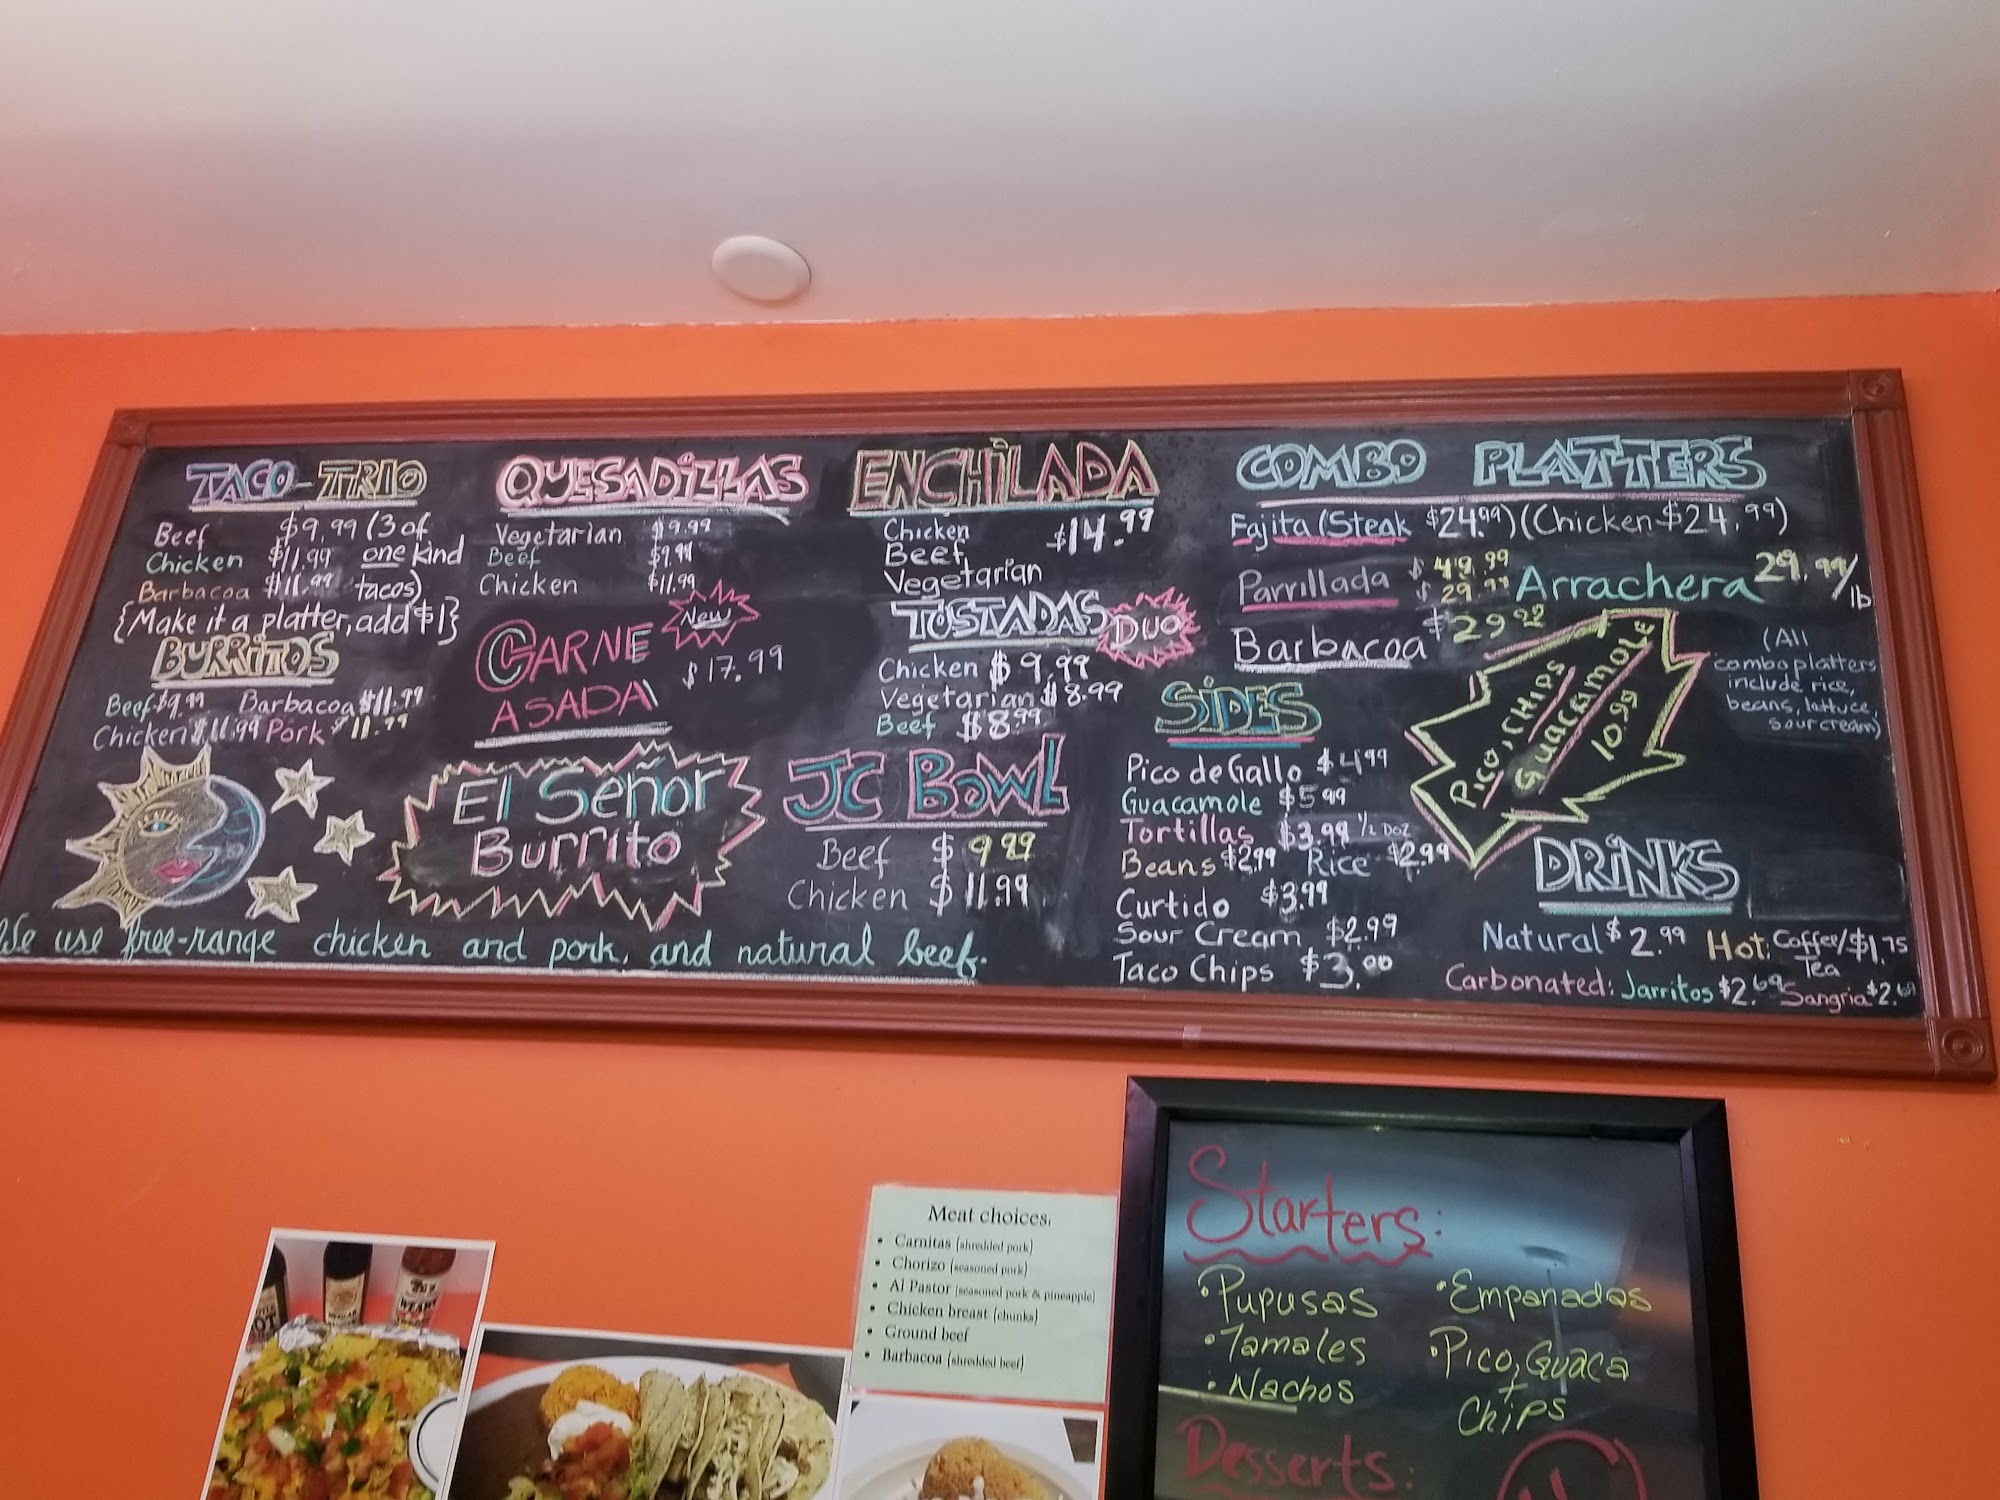 TACO-TRIO
Beef $9.99 (3 of
Chicken $11.99 one kind
Barbacoa $11.99 tacos)
{Make it a platter, add $1}
BURRITOS
Beef $9.99 Barbacoa $11.99
Chicken $11.99 Pork $11.99
QUESADILLAS
Vegetarian $9.99
Beef $9.99
Chicken $11.99
New
CARNE
ASADA $17.99
El Señor
Burrito
ENCHILADA
Chicken $14.99
Beef
Vegetarian
TOSTADAS DUO
Chicken $9.99
Vegetarian $8.99
Beef $8.99
JC BOWL
Beef $9.99
Chicken $11.99
We use free-range chicken and pork, and natural beef.
COMBO PLATTERS
Fajita (Steak $24.99) (Chicken $24.99)
Parrillada $49.99
$29.99
Arrachera 29.99/lb
Barbacoa $29.99
(All
combo platters
include rice,
beans, lettuce,
sour cream)
PICO, CHIPS
GUACAMOLE
10.99
SIDES
Pico de Gallo $4.99
Guacamole $5.99
Tortillas $3.99 1/2 Doz
Beans $2.99 Rice $2.99
Curtido $3.99
Sour Cream $2.99
Taco Chips $3.00
DRINKS
Natural $2.99 Hot: Coffee/ $1.75
Tea
Carbonated: Jarritos $2.69 Sangria $2.69
Meat choices:
• Carnitas (shredded pork)
• Chorizo (seasoned pork)
• Al Pastor (seasoned pork & pineapple)
• Chicken breast (chunks)
• Ground beef
• Barbacoa (shredded beef)
Starters:
• Pupusas
• Tamales
• Nachos
• Empanadas
• Pico, Guaca
+
Chips
Desserts: